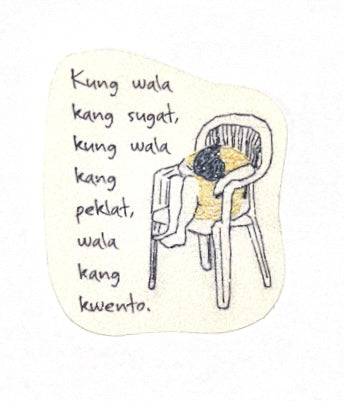 Kung wala
kang sugat,
kung wala
kang
peklat,
wala
kang
kwento.